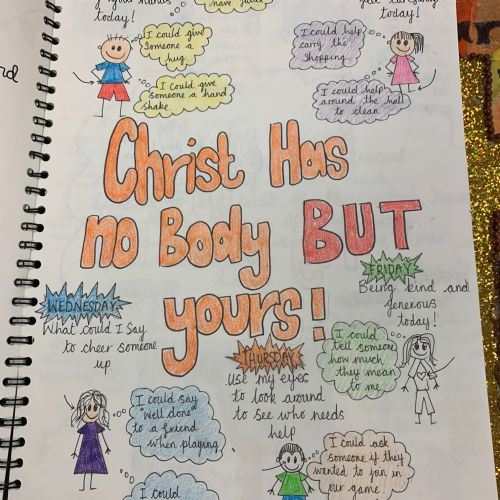 today!
have
today!
I could give
someone a
hug.
I could give
someone a hand
shake.
I could help
carry the
shopping.
I could help
around the hall
to clean
Christ Has
no Body BUT
yours!
WEDNESDAY
What could I say
to cheer someone
up
I could say
"Well done"
to a friend
when playing.
I could
THURSDAY
use my eyes
to look around
to see who needs
help
I could ask
someone if they
wanted to join in
our game.
FRIDAY
Being kind and
generous
today!
I could
tell someone
how much
they mean
to me